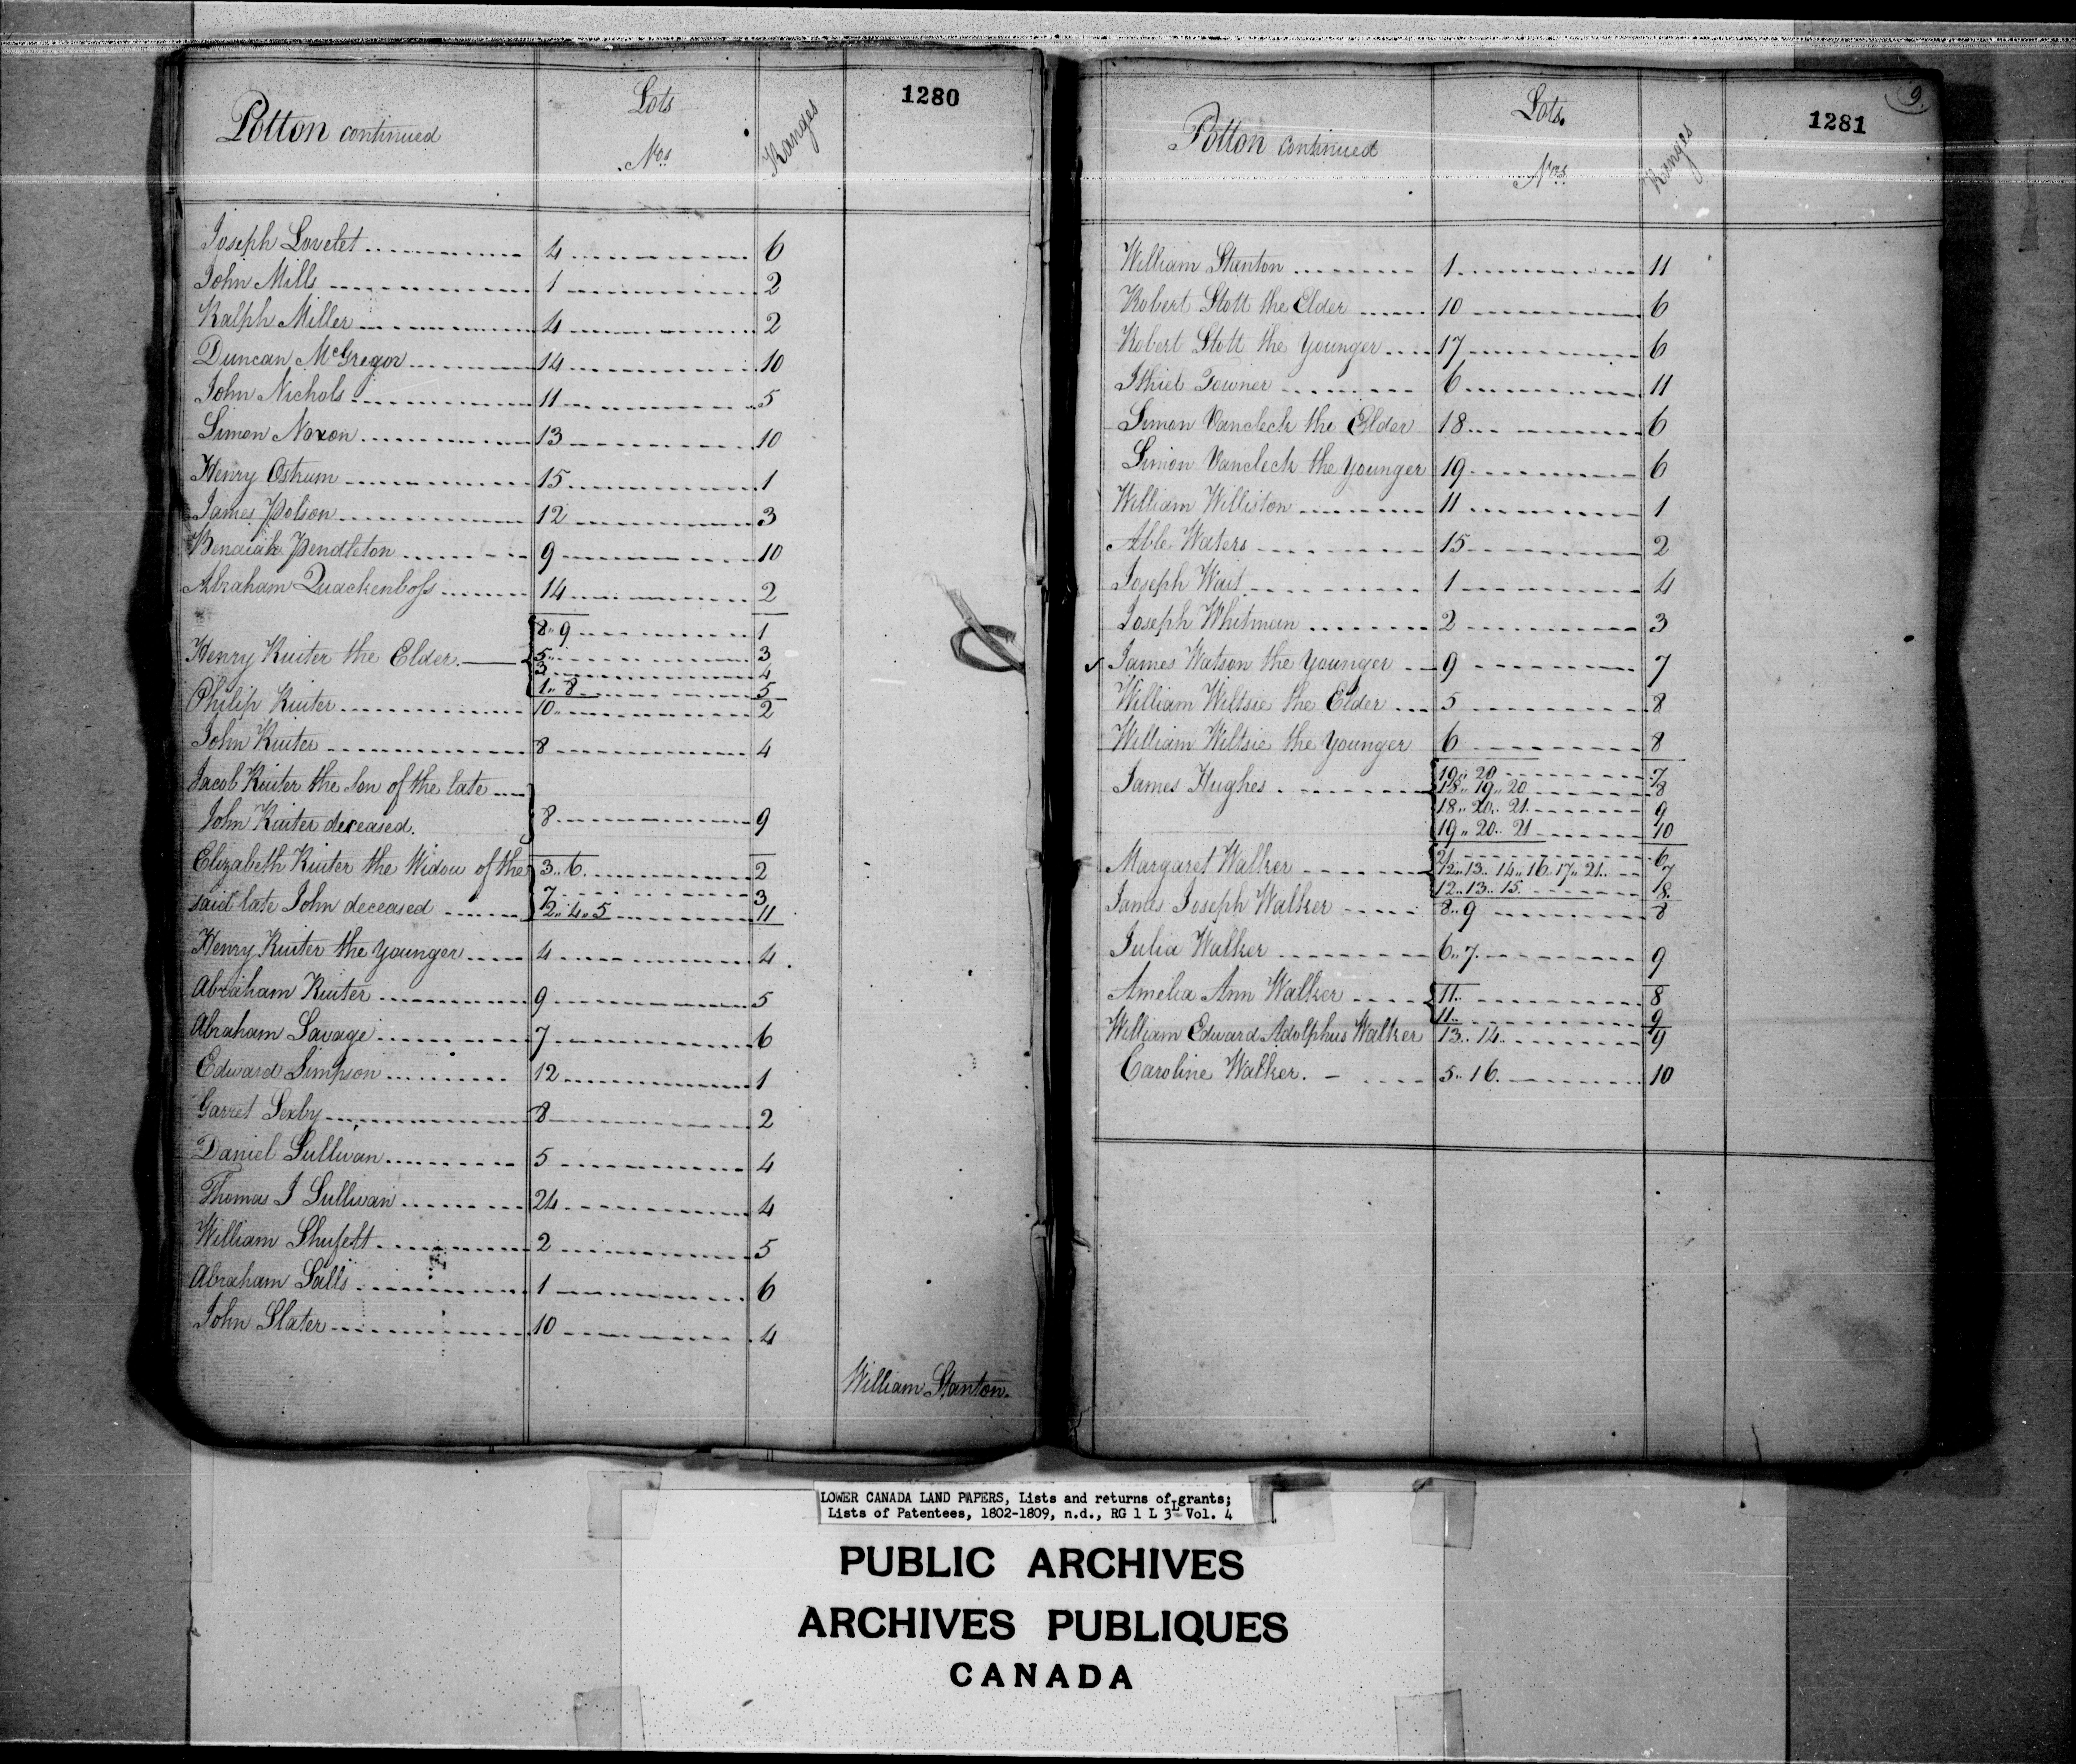 1280
Potton continued
Lots
Nos
Ranges
Joseph Lovelet 4 6
John Mills 1 2
Ralph Miller 4 2
Duncan McGregor 14 10
John Nichols 11 5
Simon Noxon 13 10
Henry Ostrum 15 1
James Polson 12 3
Benaiah Pendleton 9 10
Abraham Quackenboss 14 2
8.. 9 1
Henry Ruiter the Elder 5.. 3
3 4
1.. 8 5
Philip Ruiter 10.. 2
John Ruiter 8 4
Jacob Ruiter the Son of the late
John Ruiter deceased. 8 9
Elizabeth Ruiter the Widow of the 3.. 6 2
7 3
said late John deceased 2.. 4.. 5 11
Henry Ruiter the younger 4 4
Abraham Ruiter 9 5
Abraham Savage 7 6
Edward Simpson 12 1
Garret Sexby 8 2
Daniel Sullivan 5 4
Thomas J Sullivan 24 4
William Shufelt 2 5
Abraham Salls 1 6
John Slater 10 4
William Stanton.
9.
1281
Potton continued
Lots.
Nos
Ranges
William Stanton 1 11
Robert Stott the Elder 10 6
Robert Stott the younger 17 6
Ithiel Towner 6 11
Simon Vancleck the Elder 18 6
Simon Vancleck the younger 19 6
William Williston 11 1
Able Waters 15 2
Joseph Wait 1 4
Joseph Whitman 2 3
James Watson the younger 9 7
William Wiltsie the Elder 5 8
William Wiltsie the younger 6 8
James Hughes 19.. 20 7
18.. 19.. 20 8
18.. 20.. 21 9
19.. 20.. 21 10
Margaret Walker 21 6
12.. 13.. 14.. 16.. 17.. 21.. 7
12.. 13.. 15. 8
James Joseph Walker 8.. 9 8
Julia Walker 6.. 7. 9
Amelia Ann Walker 11.. 8
11.. 9
William Edward Adolphus Walker 13.. 14.. 9
Caroline Walker. 5.. 16. 10
LOWER CANADA LAND PAPERS, Lists and returns of grants;
Lists of Patentees, 1802-1809, n.d., RG 1 L 3 L Vol. 4
PUBLIC ARCHIVES
ARCHIVES PUBLIQUES
CANADA